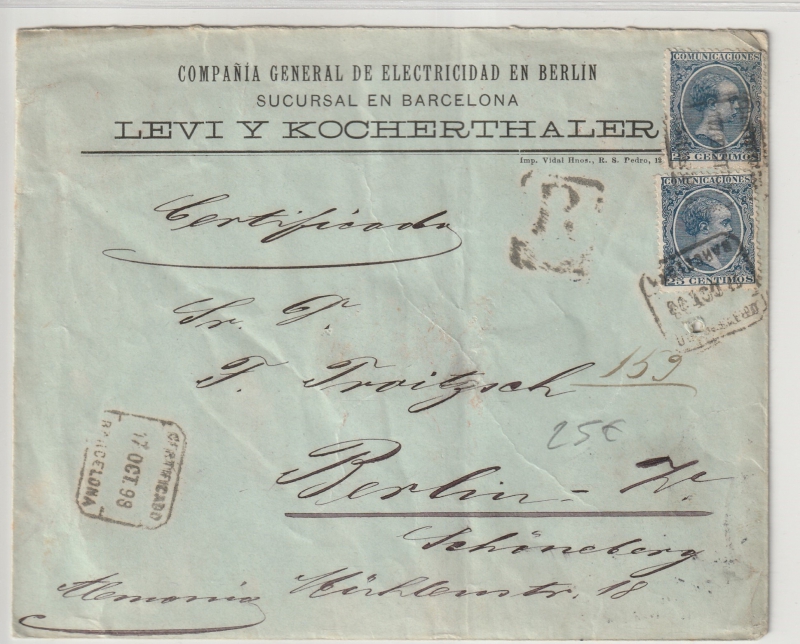 COMPAÑÍA GENERAL DE ELECTRICIDAD EN BERLÍN
SUCURSAL EN BARCELONA
LEVI Y KOCHERTHALER
Imp. Vidal Hnos., R. S. Pedro, 12
COMUNICACIONES
25 CENTIMOS
COMUNICACIONES
25 CENTIMOS
R
Certificada
Sr. D.
F. Troitzsch
159
25€
Berlin - W.
Schöneberg
Alemania Mühlenstr. 18
CERTIFICADO
17 OCT. 98
BARCELONA